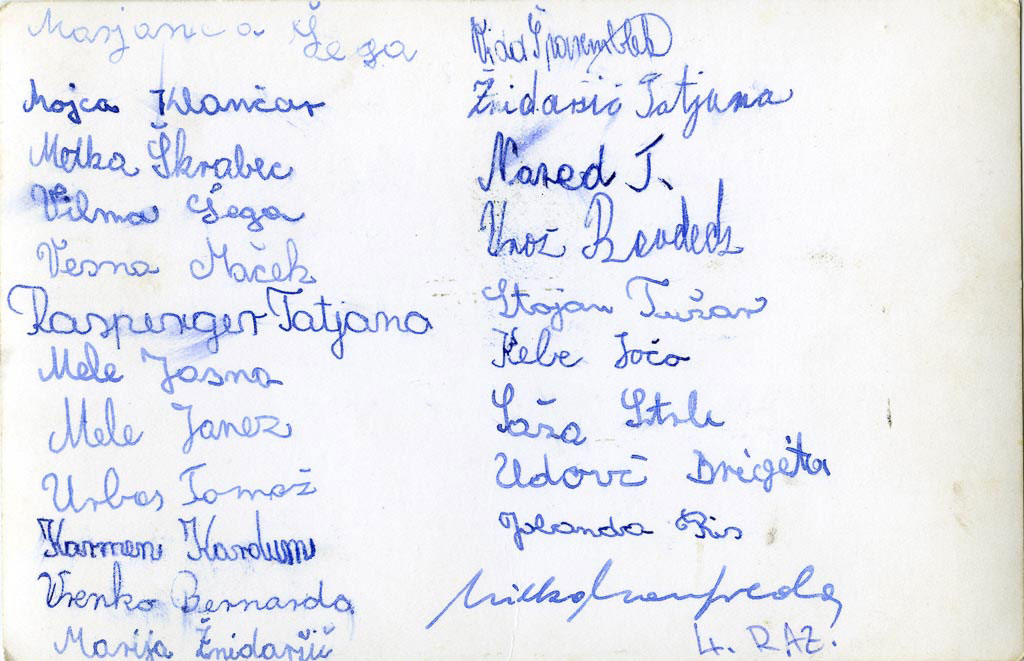 Marjanca Šega
Mojca Klančar
Metka Škrabec
Vilma Šega
Vesna Maček
Rasperger Tatjana
Mele Jasna
Mele Janez
Urbas Tomaž
Karmen Kardum
Vrenko Bernarda
Marija Žnidaršič
Vida
Žnidaršič Tatjana
Nared T.
Uroš
Stojan Tušar
Kebe Jočo
Saša Strle
Udovč Brigita
Jolanda Ris
Milka Manfreda
4. RAZ.